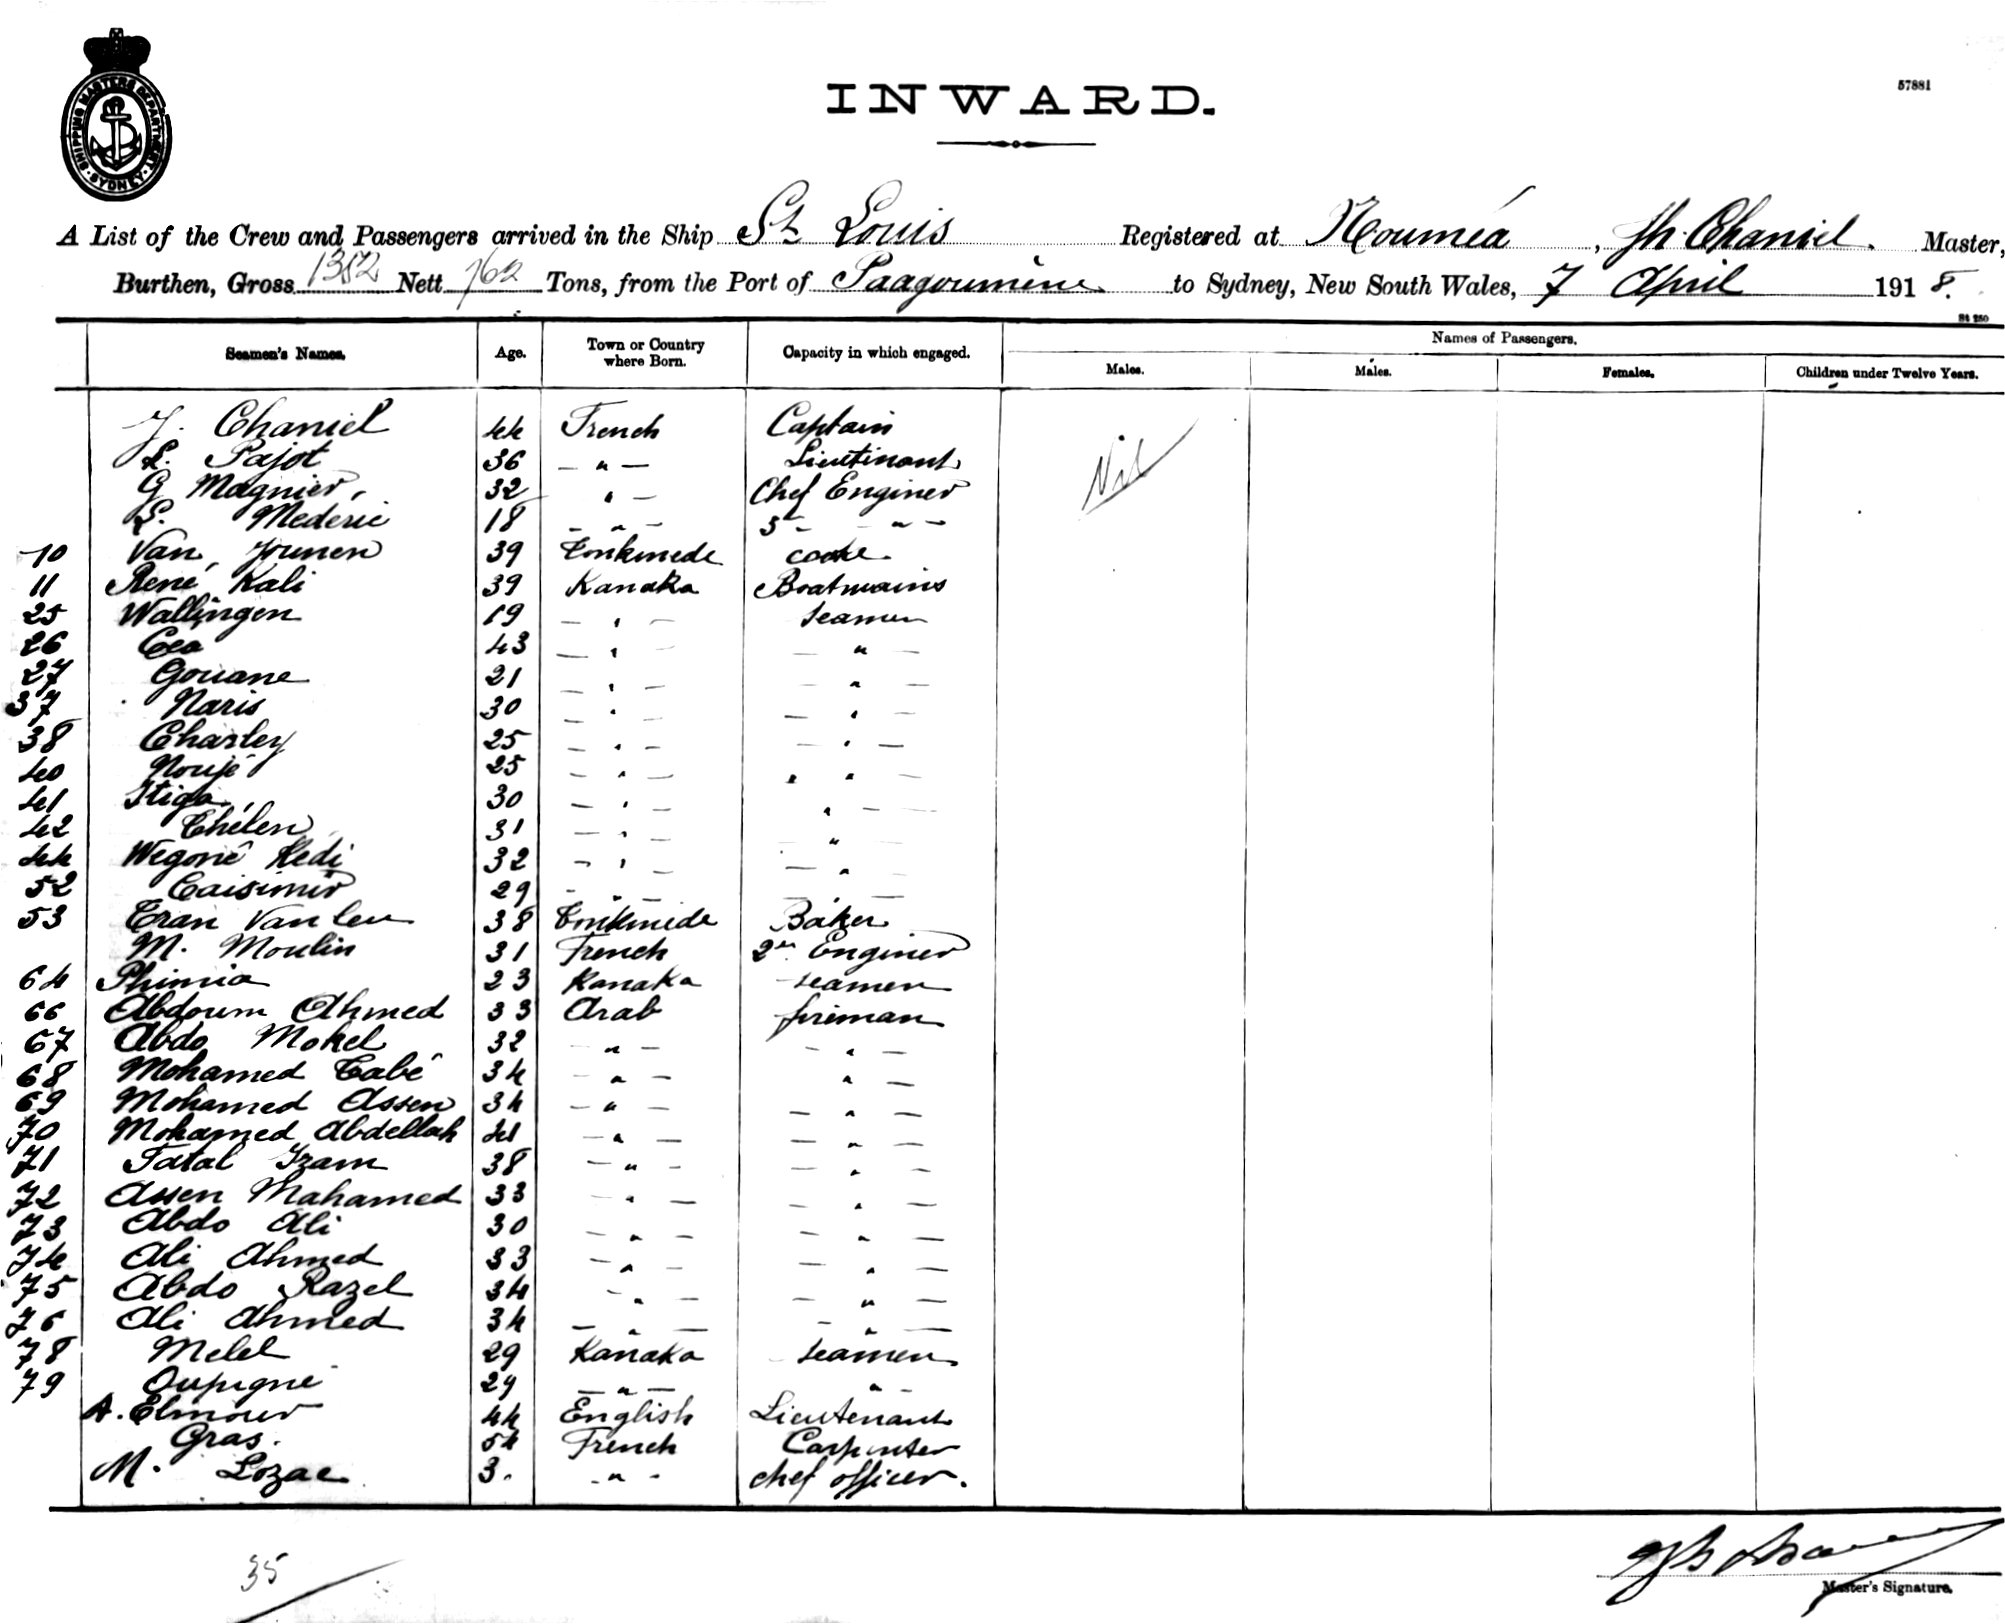 SHIPPING MASTERS DEPARTMENT · SYDNEY ·
INWARD.
57881
A List of the Crew and Passengers arrived in the Ship St Louis Registered at Nouméa, Jh. Chaniel. Master,
Burthen, Gross 1312 Nett 762 Tons, from the Port of Paagoumène to Sydney, New South Wales, 7 April 1918.
St 250
Seamen's Names. Age. Town or Country where Born. Capacity in which engaged. Names of Passengers.
Males. Males. Females. Children under Twelve Years.
J. Chaniel 44 French Captain
Nil
L. Pajot 36 — " — Lieutinant
G Magnier, 32 " — Chef Enginer
L. Mederic 18 — " — 3 — " —
10 Van, 39 Tonkinede cooke
11 René Kali 39 Kanaka Boatmains
25 Wallingen 19 — " — seamen
26 Cea 43 — " — — " —
27 Gouane 21 — " — — " —
37 Naris 30 — " — — " —
38 Charley 25 — " — — " —
40 Noujé 25 — " — " " —
41 Itiga, 30 — " — " —
42 Thélen 31 — " — "
44 Wegoné Kedi 32 — " — — " —
52 Caisimir 29 — " — — " —
53 Tran Van leu 38 Tonkinede Baker
M. Moulin 31 French 2er Enginer
64 Phimia 23 Kanaka seamen
66 Abdoum Ahmed 33 Arab fireman
67 Abdo Mokel 32 — " — — " —
68 Mohamed Tabé 34 — " — " —
69 Mohamed Assen 34 — " — — " —
70 Mohamed Abdellah 41 — " — — " —
71 Fatal Izam 38 — " — — " —
72 Assen Mahamed 33 — " — — " —
73 Abdo Ali 30 — " — — " —
74 Ali Ahmed 33 — " — — " —
75 Abdo Razel 34 — " — — " —
76 Ali Ahmed 34 — " — — " —
78 Melel 29 Kanaka seamen
79 Oupigné 29 — " — " —
A. Elmour 44 English Lieutenant
Gras. 54 French Carpenter
M. Lozac 3. - " - chef officer.
35
Master's Signature.